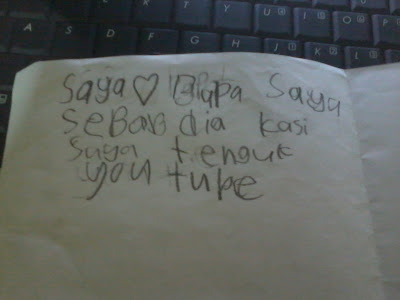 U I O P
A S D F G H J K L
Saya ♡ Saya
SeBaB dia kasi
Saya tenguk
you tube